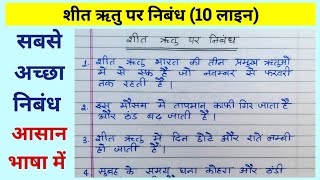 शीत ऋतु पर निबंध (10 लाइन)
सबसे
अच्छा
निबंध
आसान
भाषा में
शीत ऋतु पर निबंध
1. शीत ऋतु भारत की तीन प्रमुख ऋतुओं
में से एक है जो नवम्बर से फरवरी
तक रहती है ।
2. इस मौसम में तापमान काफी गिर जाता है
और ठंड बढ़ जाती है ।
3. शीत ऋतु में दिन छोटे और रातें लम्बी
हो जाती है ।
4. सुबह के समय घना कोहरा और ठंडी